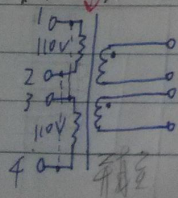 1
110V
2
3
110V
4